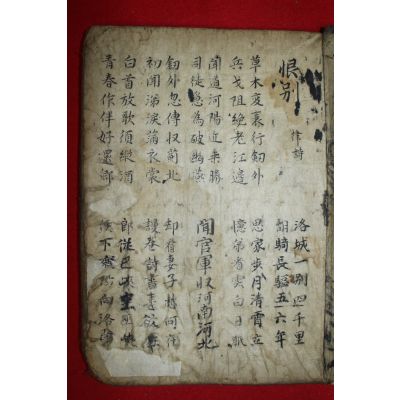 恨別
作詩
洛城一別四千里
胡騎長驅五六年
草木变衰行釰外
兵戈阻絶老江邊
思家步月清宵立
憶弟看雲白日眠
聞道河陽近乘勝
司徒急為破幽燕
聞官軍收河南河北
釰外忽傳収薊北
初聞涕淚滿衣裳
却看妻子愁何在
謾卷詩書喜欲
白首放歌須縱酒
青春作伴好還鄉
即從巴峽穿巫峽
下襄陽向洛陽